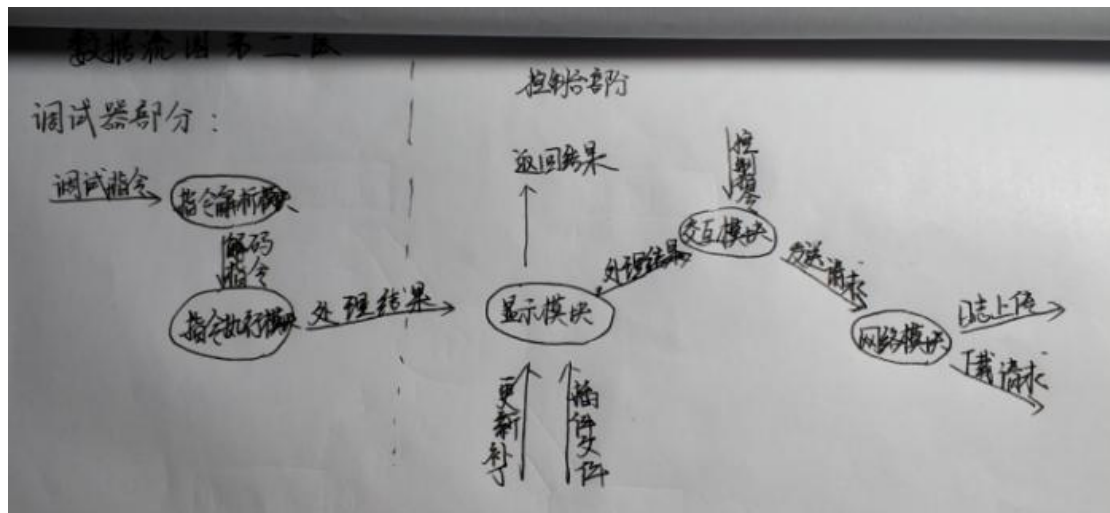 数据流图第二层
调试器部分：
控制台部分
调试指令
指令解析模块
解码
指令
指令执行模块
处理结果
返回结果
显示模块
处理结果
控制指令
交互模块
发送请求
网络模块
日志上传
下载请求
更新补丁
插件文件